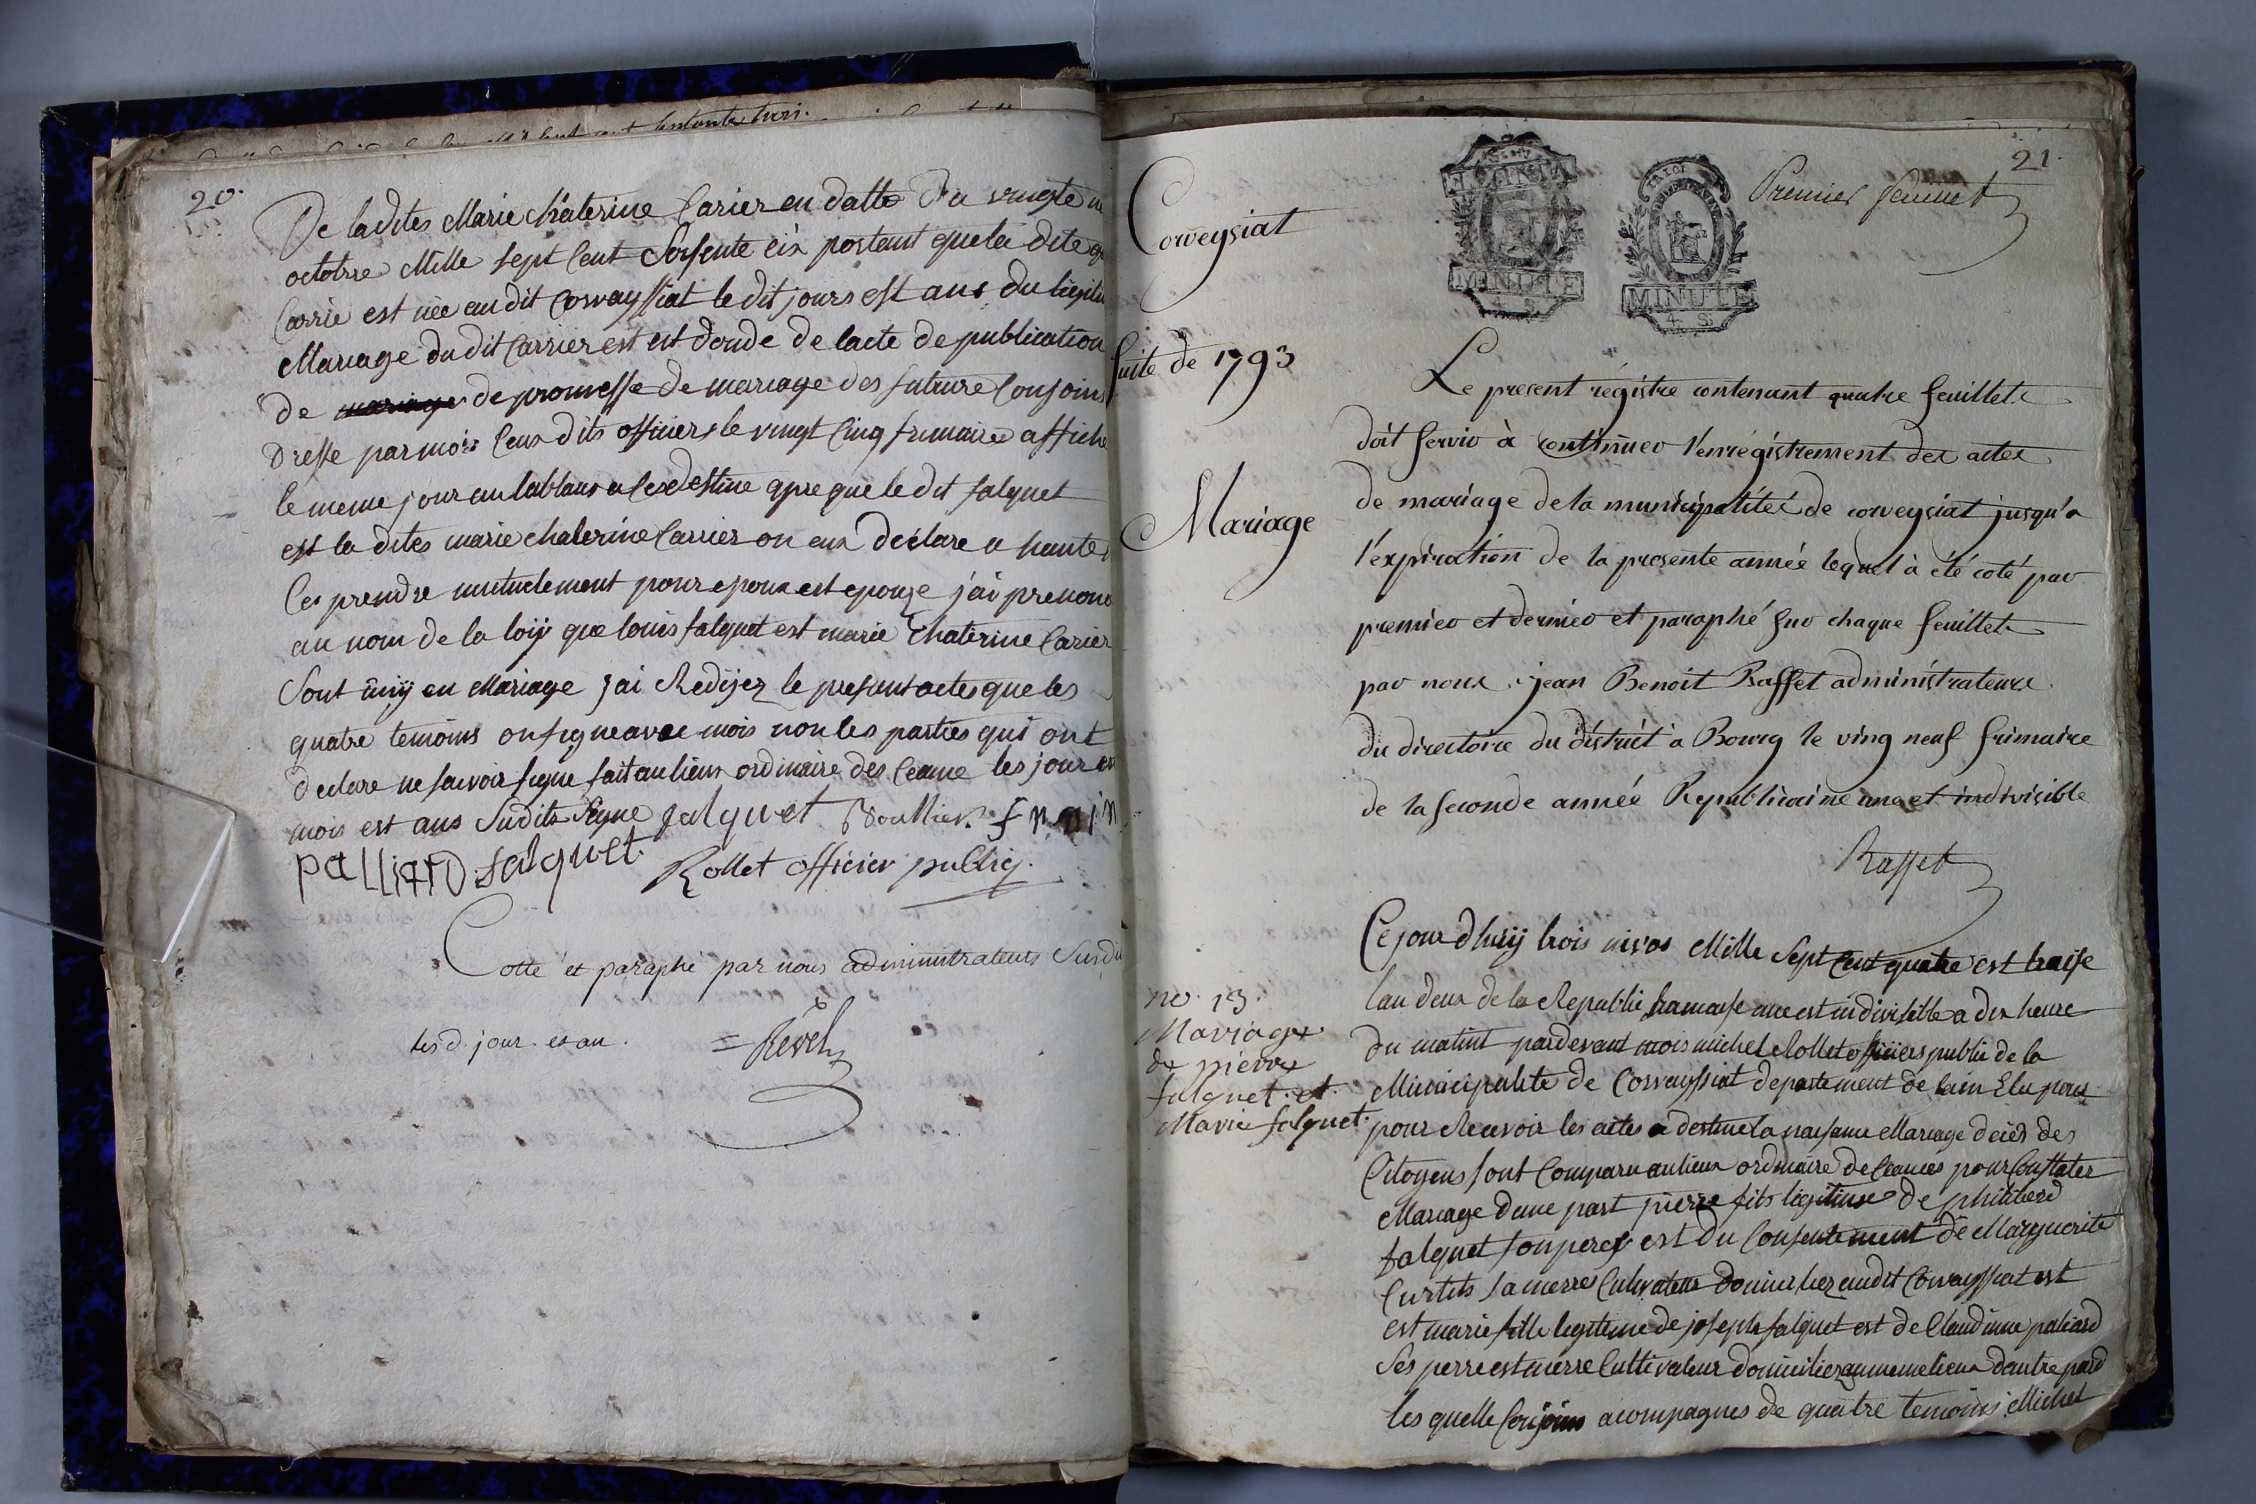 20.
De la dites Marie Chaterine Carier en datte du vingte
octobre Mille sept Cent Soisente six portent que la dite
Carrie est née au dit Corvayssiat le dit jours est ans du
Mariage du dit Carrier est est doude de lacte de publication
de mariage de promesse de mariage des future Conjoins
dresse par mois Ceux dits officiers le vingt Cinq frimaire affiche
le meme jour au tablaus a Ces destine apre que le dit falquet
est la dites marie chaterine Carrier on eux déclare a haute
Ces prendre mutuelement pour epoux est epouze j'ai
au nom de la loij que louis falquet est marie Chaterine Carier
Sont ûnÿ en Mariage jai Redijez le present actes que les
quatre temoins on signe avec mois non les parties qui ont
declare ne savoir signe fait au lieux ordinaire des Ceance les jour
mois est ans Sudits Signe falquet
palliard falquet Rollet officier public
Cotté et paraphé par nous administrateurs
les d. jour et an. = Rével
21.
Premier feuillet
MINUTE
4 S
MINUTE
4 S
Corveysiat
Suite de 1793
Mariage
Le present régistre contenant quatre feuillets
doit servir à continuer l'enrégistrement des actes
de mariage de la municipalité de corveysiat jusqu'a
l'expiration de la presente année lequel à été coté par
premier et dernier et paraphé sur chaque feuillets
par nous jean Benoit Raffet administrateurs
du directoire du district à Bourg le ving neuf frimaire
de la seconde année Republicaine une et indivisible
Raffet
no. 13.
Mariage
de pierre
falquet et
Marie falquet
Ce jour dhuÿ trois nivos Mille Sept Cent quatre est traise
lan deux de la Republi francaise une est indivisible a dix heure
du matint pardevant mois michel Rollet officiers public de la
Municipalite de Corvayssiat departement de lain Elu pour
pour Recevoir les actes a destine la naisance Mariage deces des
Citoyens sont Comparu au lieux ordinaire de Ceances pour Constater
Mariage dune part pierre fils legitime de philiberd
falquet son pere est du Consentement de Marguerite
Curtits sa merre Cultivateur domicilier au dit Corvayssiat est
est marie fille legitime de joseph falquet est de Claudinne paliard
Ses perre est merre Cultivateur domicilier au meme lieux dautre pard
les quelle Conjoins acompagnes de quatre temoins Michel